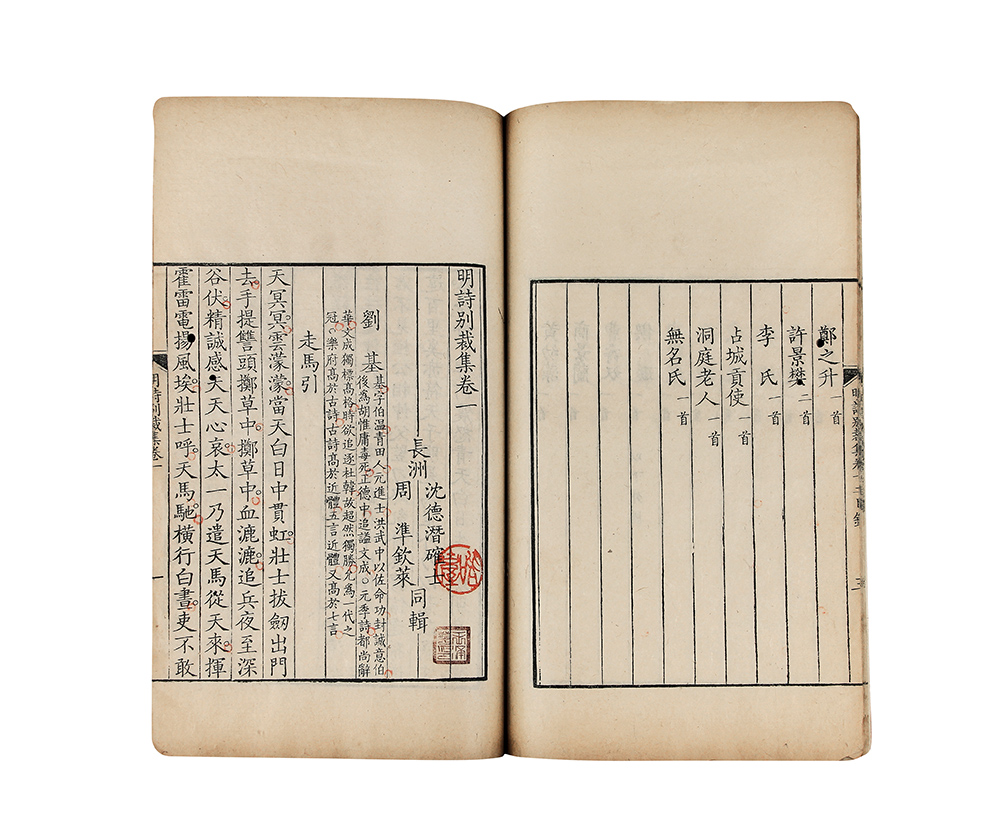 鄭之升 一首
許景樊 二首
李 氏 一首
占城貢使 一首
洞庭老人 一首
無名氏 一首
明詩別裁集卷一
長洲 沈德潛確士
周 準欽萊 同輯
劉 基
基字伯温青田人元進士洪武中以佐命功封誠意伯
後為胡惟庸毒死正德中追謚文成○元季詩都尚辭
華文成獨標高格時欲追逐杜韓故超然獨勝允為一代之
冠○樂府高於古詩古詩高於近體五言近體又高於七言
走馬引
天冥冥雲濛濛當天白日中貫虹壯士拔劒出門
去手提讐頭擲草中擲草中血漉漉追兵夜至深
谷伏精誠感天天心哀太一乃遣天馬從天來揮
霍雷電揚風埃壯士呼天馬馳橫行白晝吏不敢
明詩別裁集卷一
一